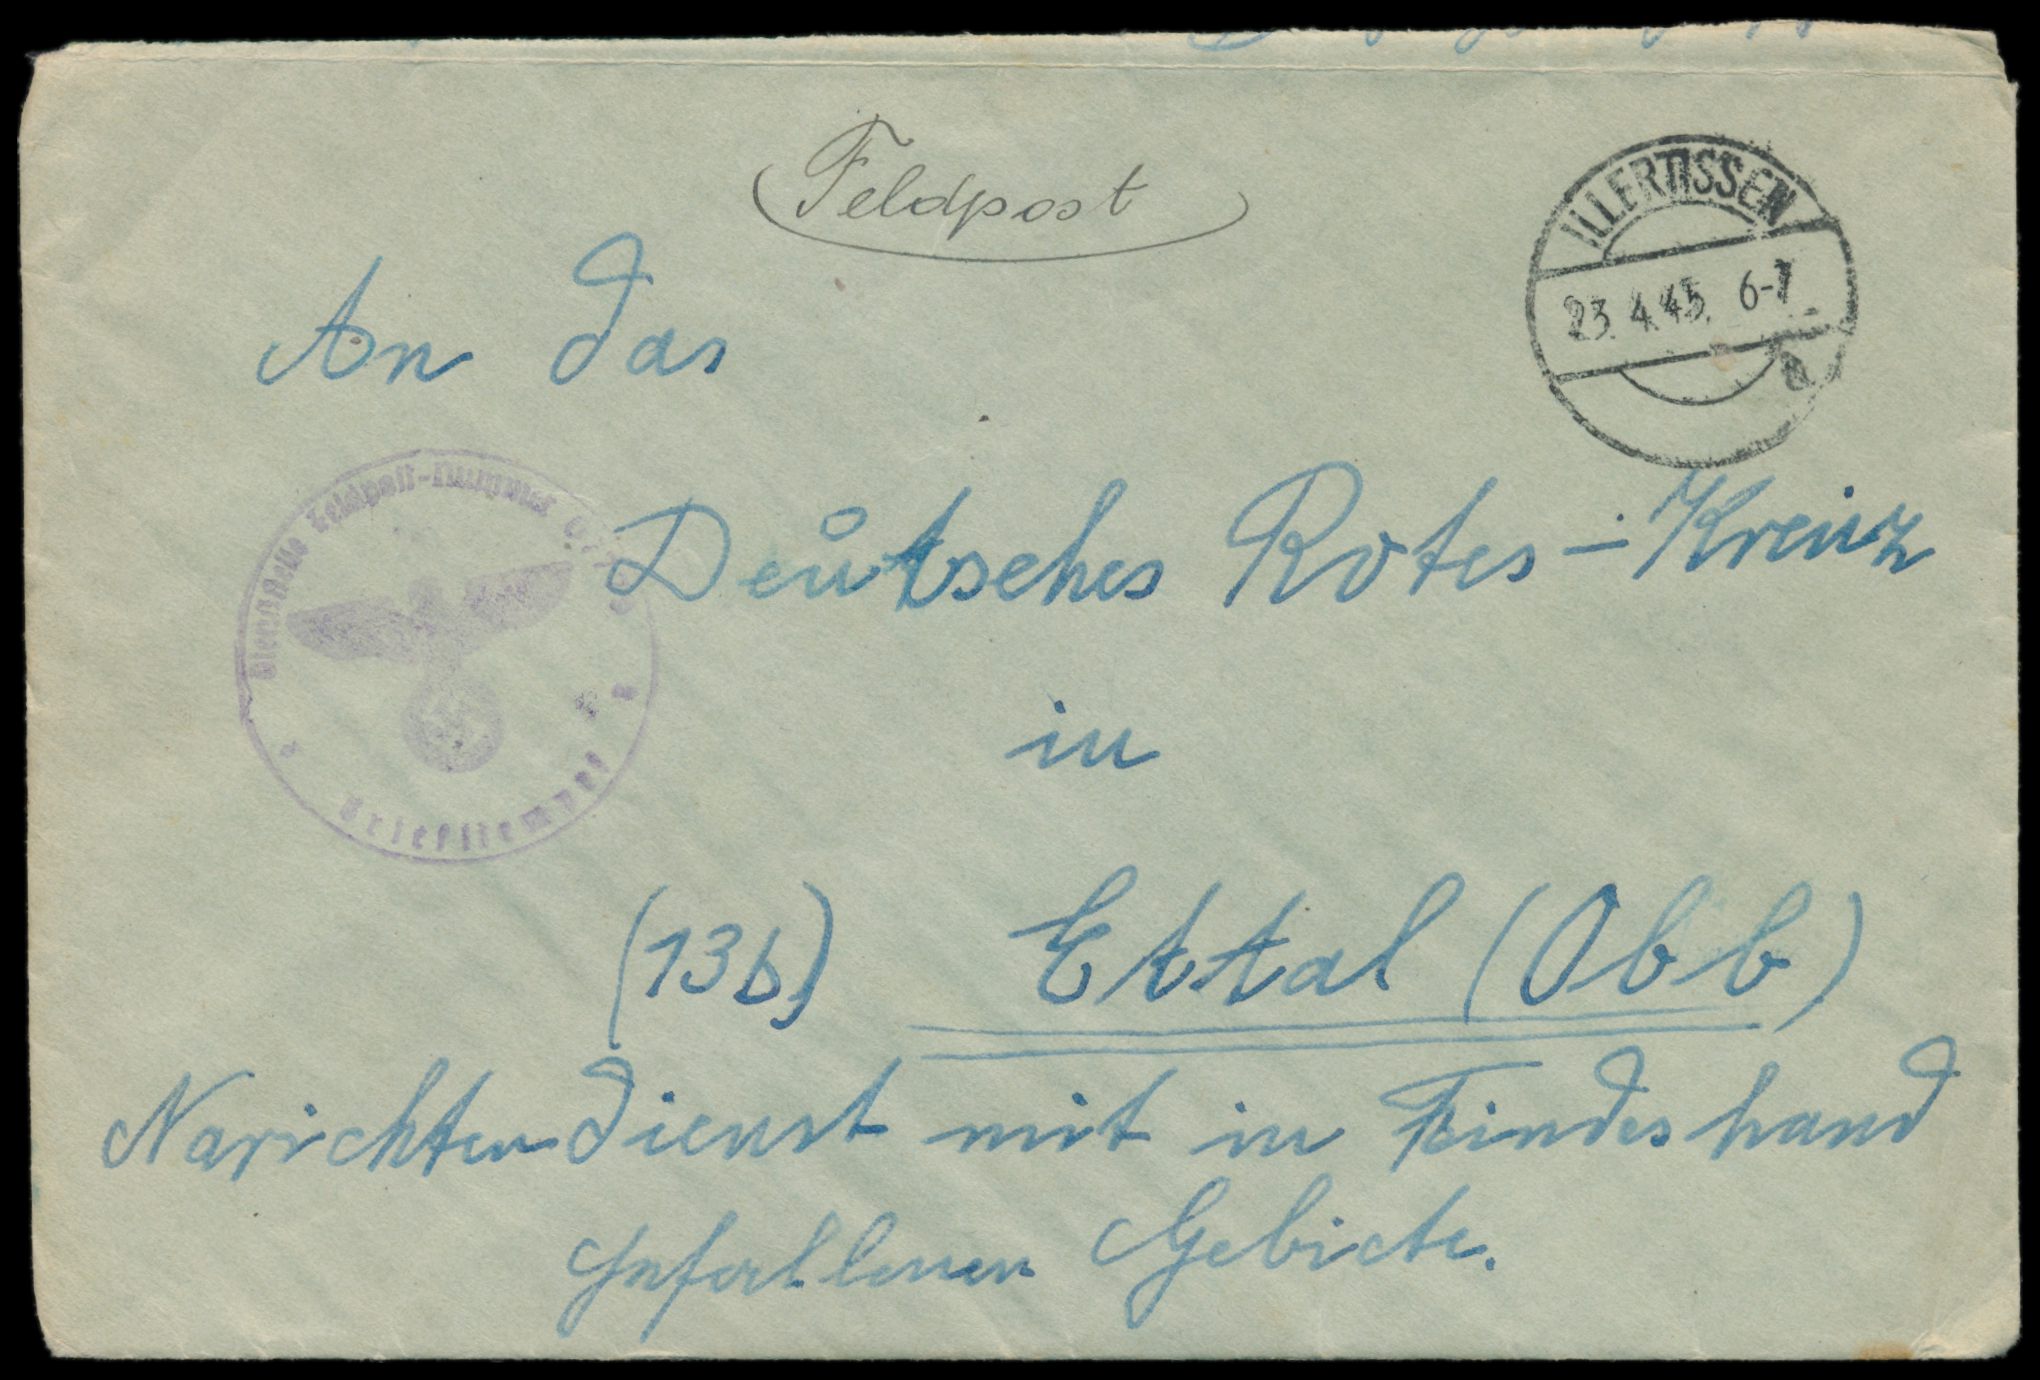 Feldpost
ILLERTISSEN
23.4.45. 6-7
a
An das
Dienststelle Feldpost-Nummer
Deutsches Rotes-Kreuz
in
Briefstempel
(13b) Ettal (Obb)
Narichtendienst mit in Feindeshand
gefallenen Gebiete.